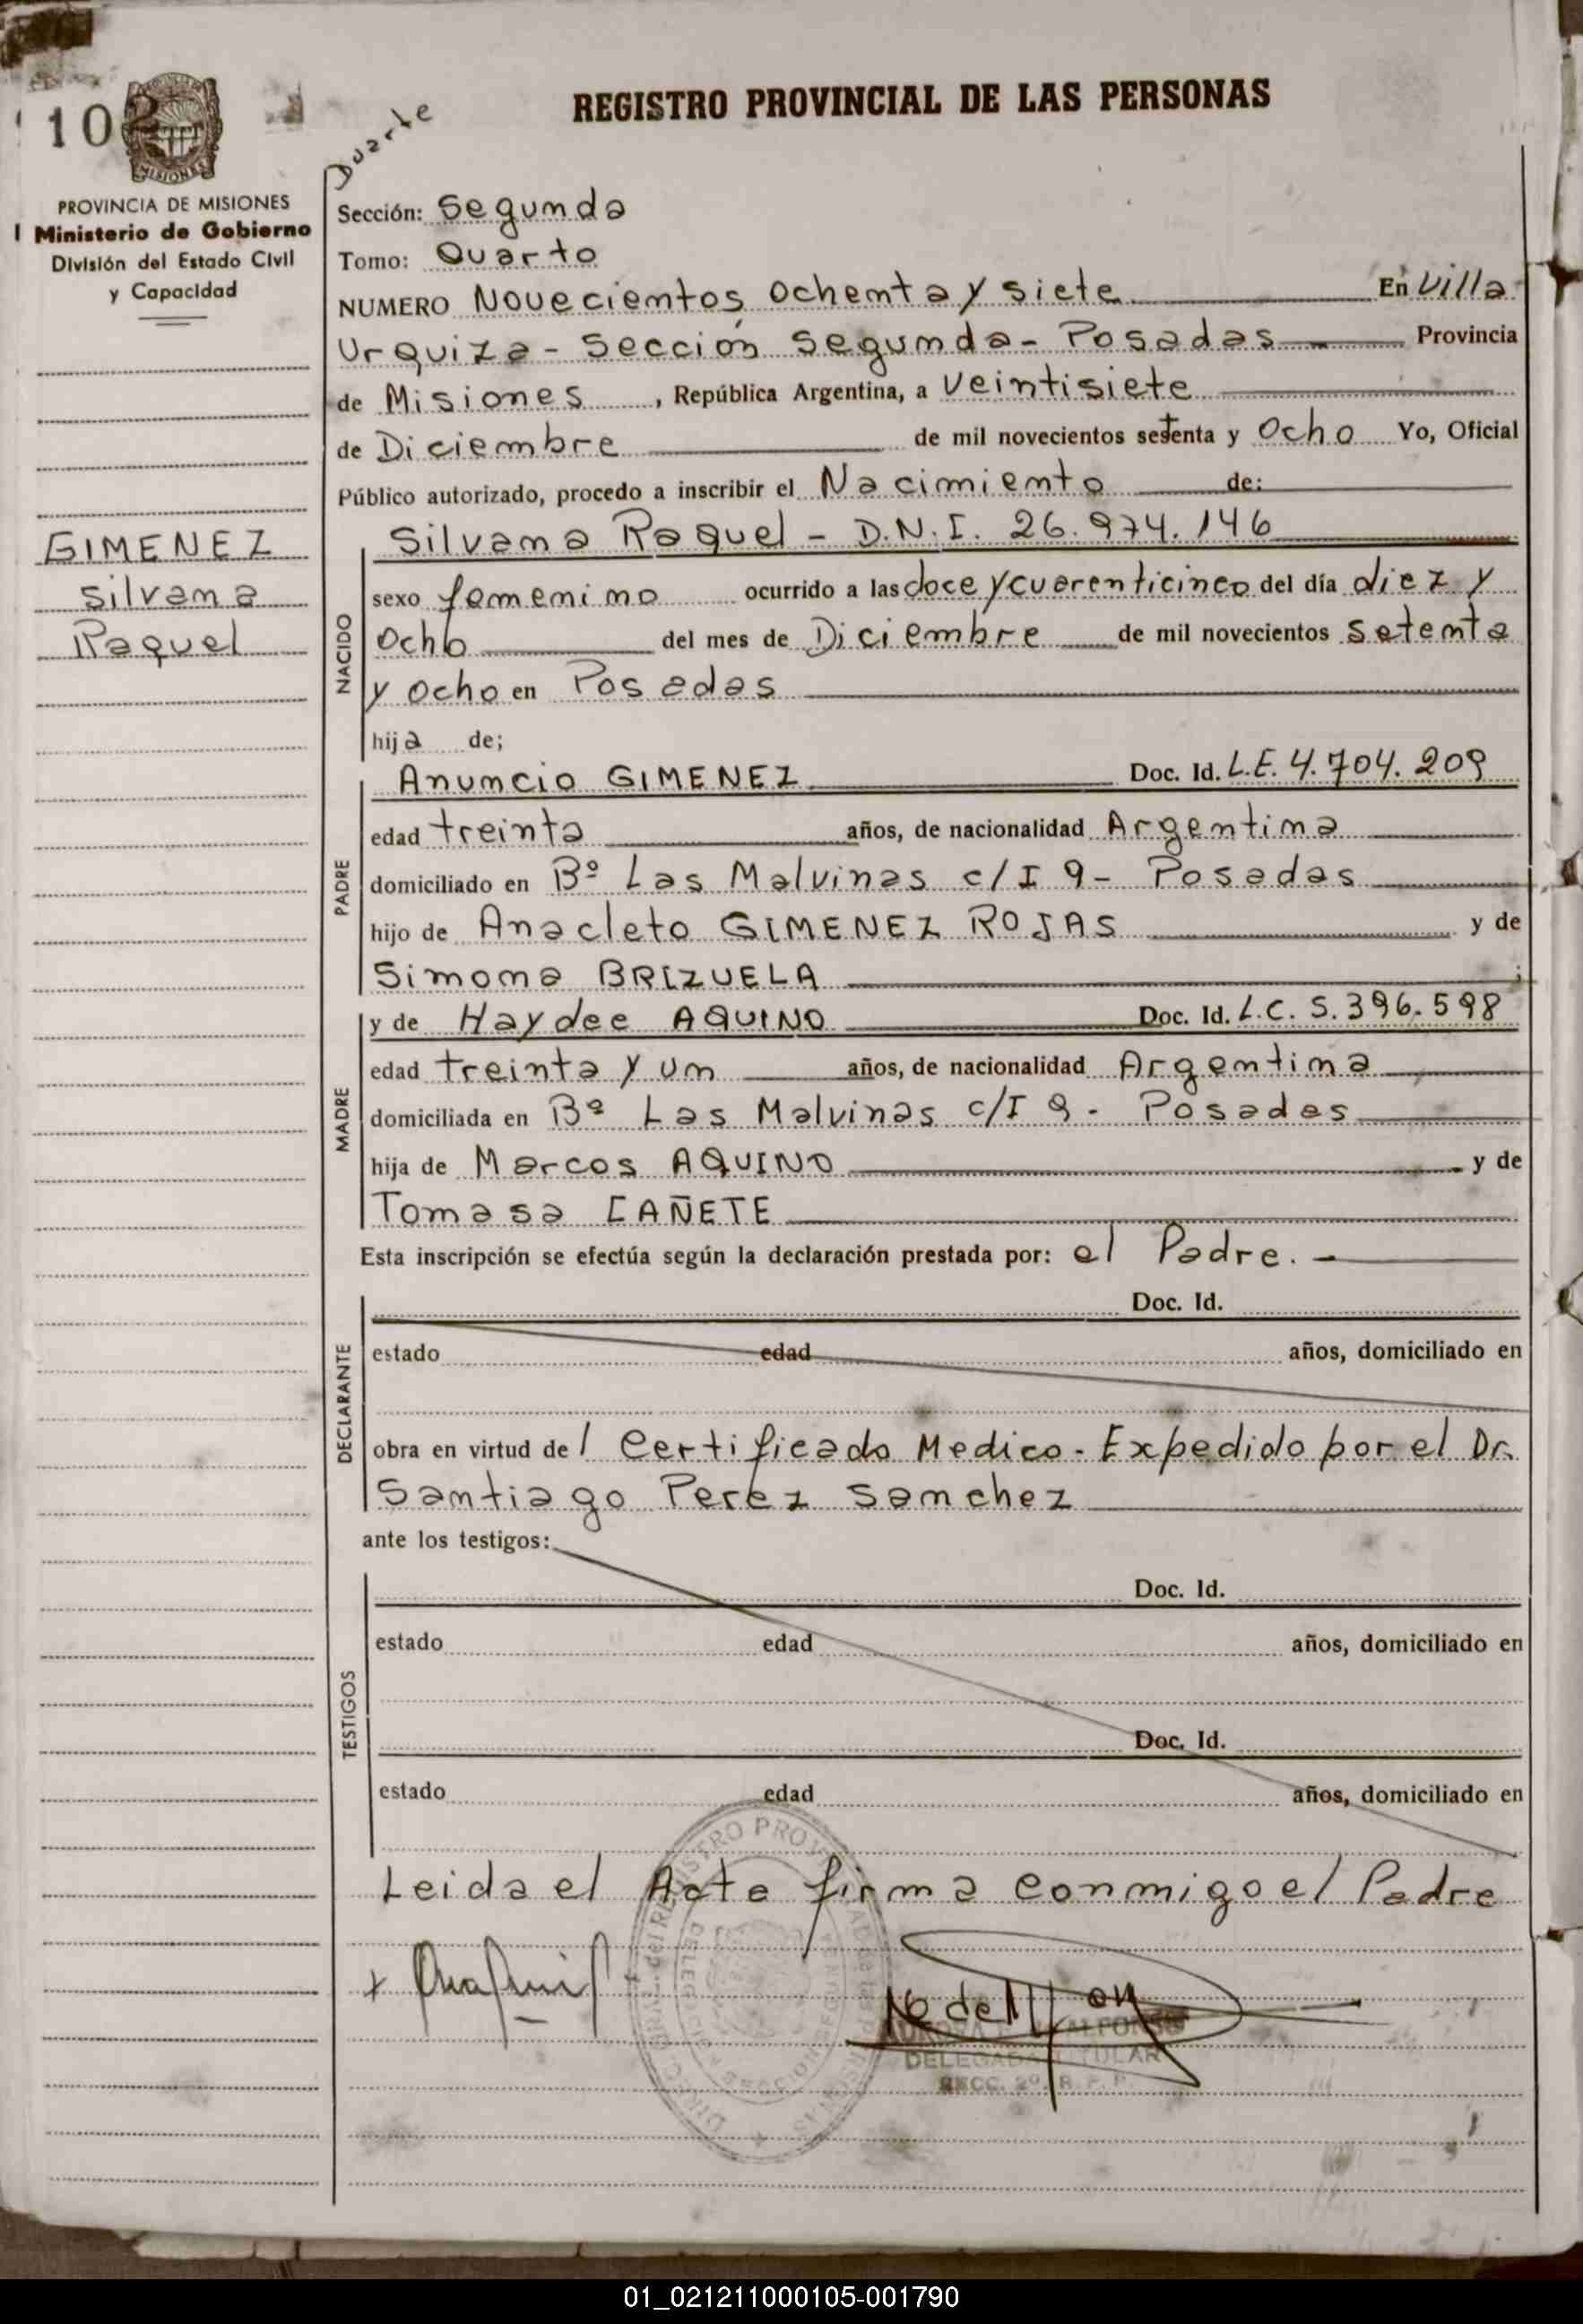 REGISTRO PROVINCIAL DE LAS PERSONAS
102
MISIONES
PROVINCIA DE MISIONES
Ministerio de Gobierno
División del Estado Civil
y Capacidad
GIMENEZ
Silvana
Raquel
Duarte
Sección: Segunda
Tomo: Quarto
NUMERO Novecientos Ochenta y siete En Villa
Urquiza - Sección Segunda - Posadas Provincia
de Misiones, República Argentina, a veintisiete
de Diciembre de mil novecientos setenta y Ocho Yo, Oficial
Público autorizado, procedo a inscribir el Nacimiento de:
Silvana Raquel - D.N.I. 26.974.146
NACIDO
sexo femenino ocurrido a las doce y cuarenticinco del día diez y
Ocho del mes de Diciembre de mil novecientos setenta
y ocho en Posadas
hija de;
PADRE
Anuncio GIMENEZ Doc. Id. L.E. 4.704.209
edad treinta años, de nacionalidad Argentina
domiciliado en Bº Las Malvinas c/I 9 - Posadas
hijo de Anacleto GIMENEZ ROJAS y de
Simona BRIZUELA ;
MADRE
y de Haydee AQUINO Doc. Id. L.C. 5.396.598
edad treinta y un años, de nacionalidad Argentina
domiciliada en Bº Las Malvinas c/I 9 - Posadas
hija de Marcos AQUINO y de
Tomasa CAÑETE
Esta inscripción se efectúa según la declaración prestada por: el Padre. -
DECLARANTE
Doc. Id.
estado edad años, domiciliado en
obra en virtud del Certificado Medico - Expedido por el Dr.
Santiago Perez Sanchez
ante los testigos:
TESTIGOS
Doc. Id.
estado edad años, domiciliado en
Doc. Id.
estado edad años, domiciliado en
Leida el Acta firma conmigo el Padre
DELEGADA TITULAR
SECC. 2º R. P. P.
01_021211000105-001790